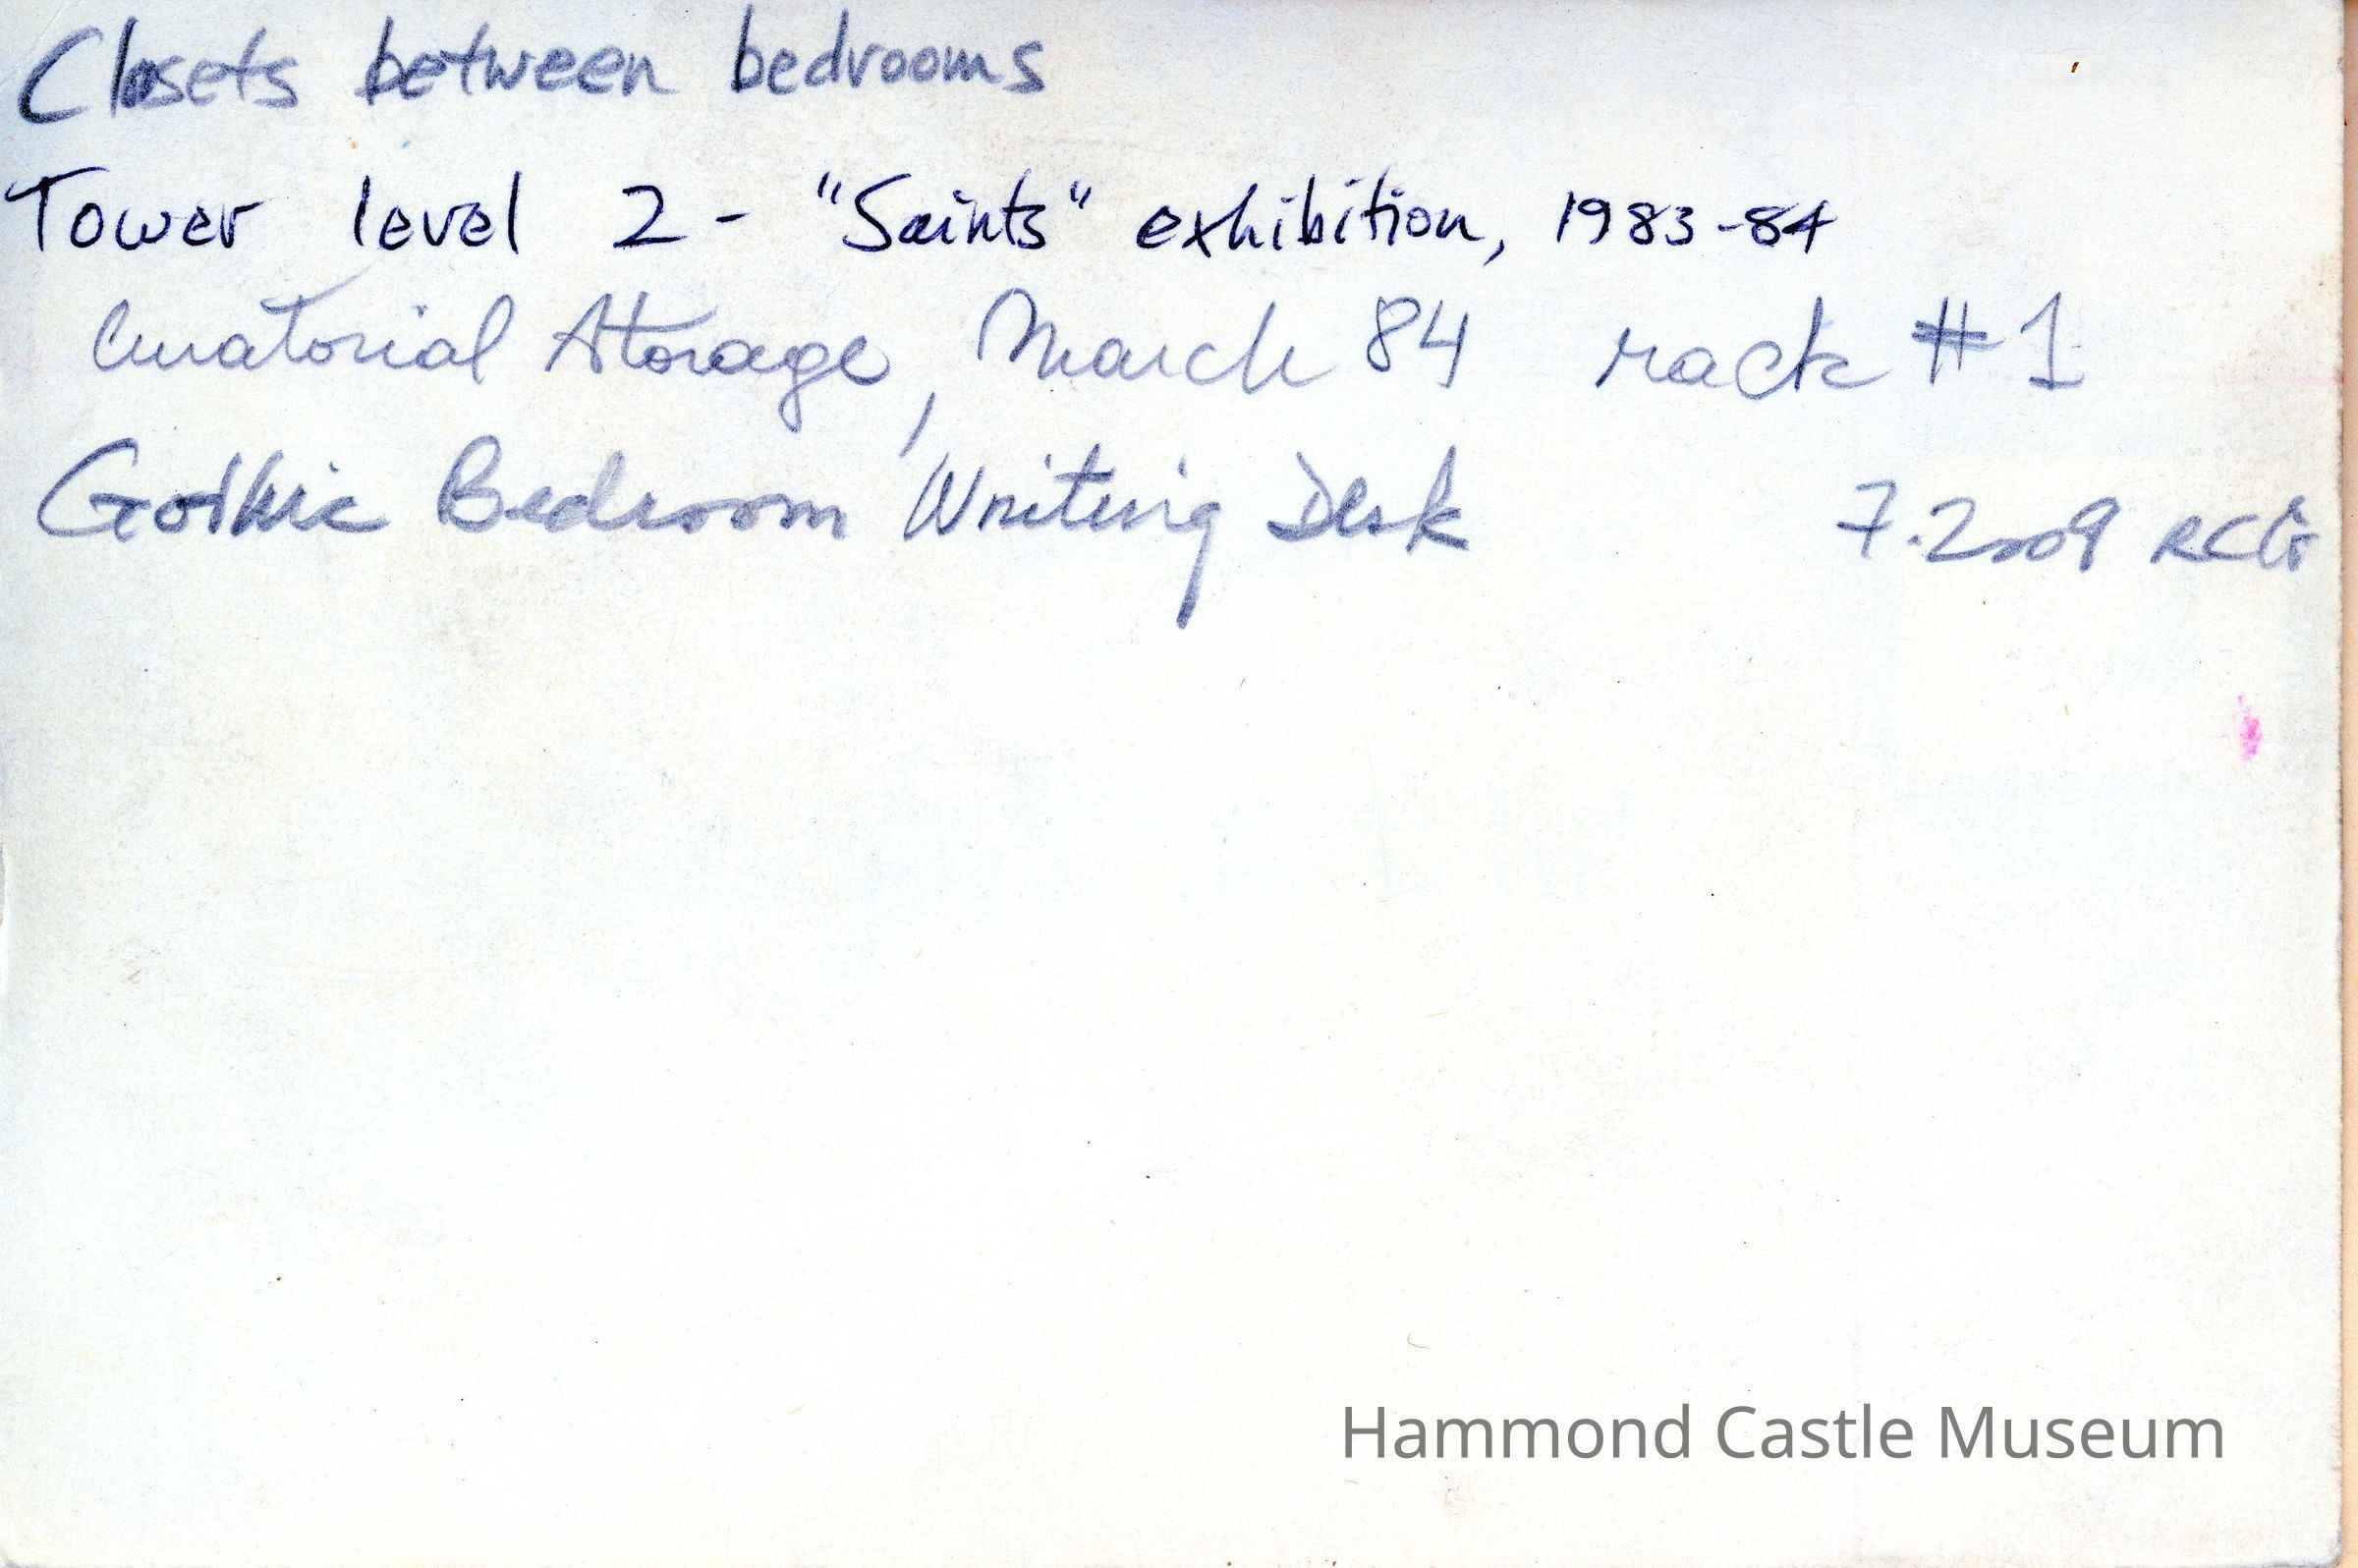 Closets between bedrooms
Tower level 2 - "Saints" exhibition, 1983-84
Curatorial Storage, March 84 rack #1
Gothic Bedroom Writing Desk 7.2009 RCG
Hammond Castle Museum